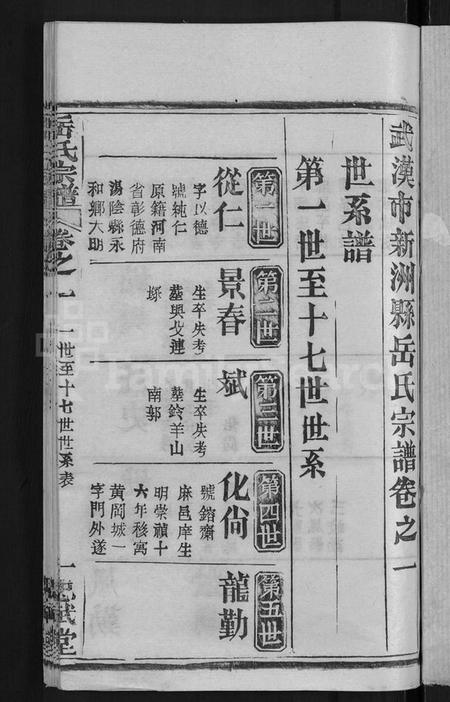 武漢市新洲縣岳氏宗譜卷之一
世系譜
第一世至十七世世系
第一世
從仁
字以德
號純仁
原籍河南
省彰德府
湯陰縣永
和鄉大明
第二世
景春
生卒失考
塟與父連
塚
第三世
斌
生卒失考
塟鈴羊山
南郭
第四世
化尙
號鎔齋
麻邑庠生
明崇禎十
六年移寓
黃岡城一
字門外遂
第五世
龍勤
岳氏宗譜
卷之一
一世至十七世世系表
一
武堂